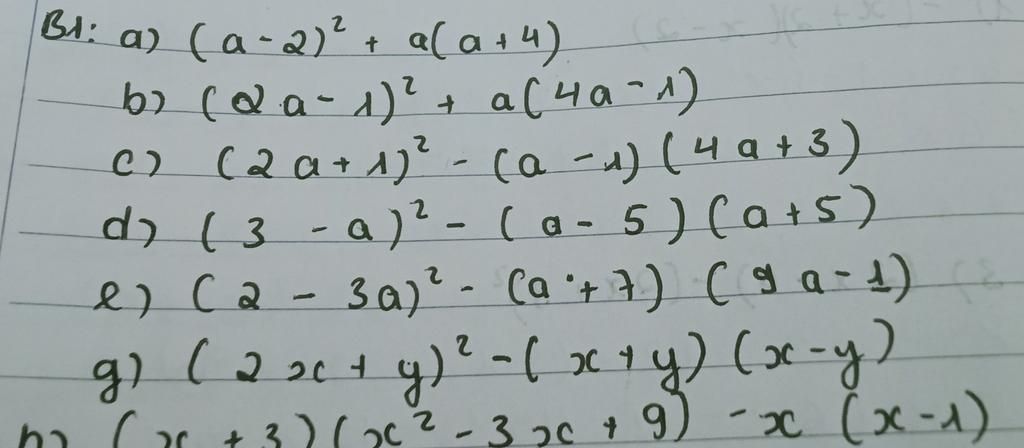 B1: a) (a-2)² + a(a+4)
b) (2a-1)² + a(4a-1)
c) (2a+1)² - (a-1)(4a+3)
d) (3-a)² - (a-5)(a+5)
e) (2-3a)² - (a+7)(9a-1)
g) (2x+y)² - (x+y)(x-y)
h) (x+3)(x²-3x+9) - x(x-1)